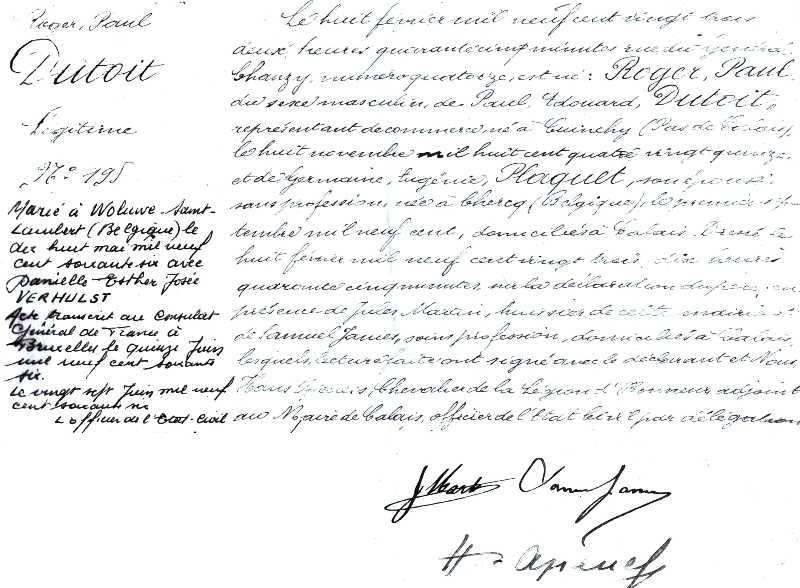 Roger, Paul
Dutoit
Légitime
N° 195
Marié à Woluwe Saint-
Lambert (Belgique) le
dix huit mai mil neuf
cent soixante six avec
Danielle Esther Josée
VERHULST
Acte transcrit au Consulat
Général de France à
Bruxelles le quinze Juin
mil neuf cent soixante
six.
Le vingt sept Juin mil neuf
cent soixante six
L'officier de l'Etat-Civil
Le huit février mil neuf cent vingt trois
deux heures quarante cinq minutes rue du Général
Chanzy, numéro quatorze, est né : Roger, Paul
du sexe masculin, de Paul, Edouard, Dutoit,
représentant de commerce, né à Cuinchy (Pas de Calais),
le huit novembre mil huit cent quatre vingt quinze
et de Germaine, Eugénie, Plaquet, son épouse
sans profession, née à Chercq (Belgique), le premier sep-
tembre mil neuf cent, domiciliés à Calais. Dressé le
huit février mil neuf cent vingt trois, dix heures
quarante cinq minutes, sur la déclaration du père, en
présence de Jules Martin, huissier de cette mairie et
de Samuel James, sans profession, domiciliés à Calais,
lesquels, lecture faite ont signé avec le déclarant et Nous,
Chevalier de la Légion d'Honneur adjoint
au Maire de Calais, officier de l'Etat Civil par délégation